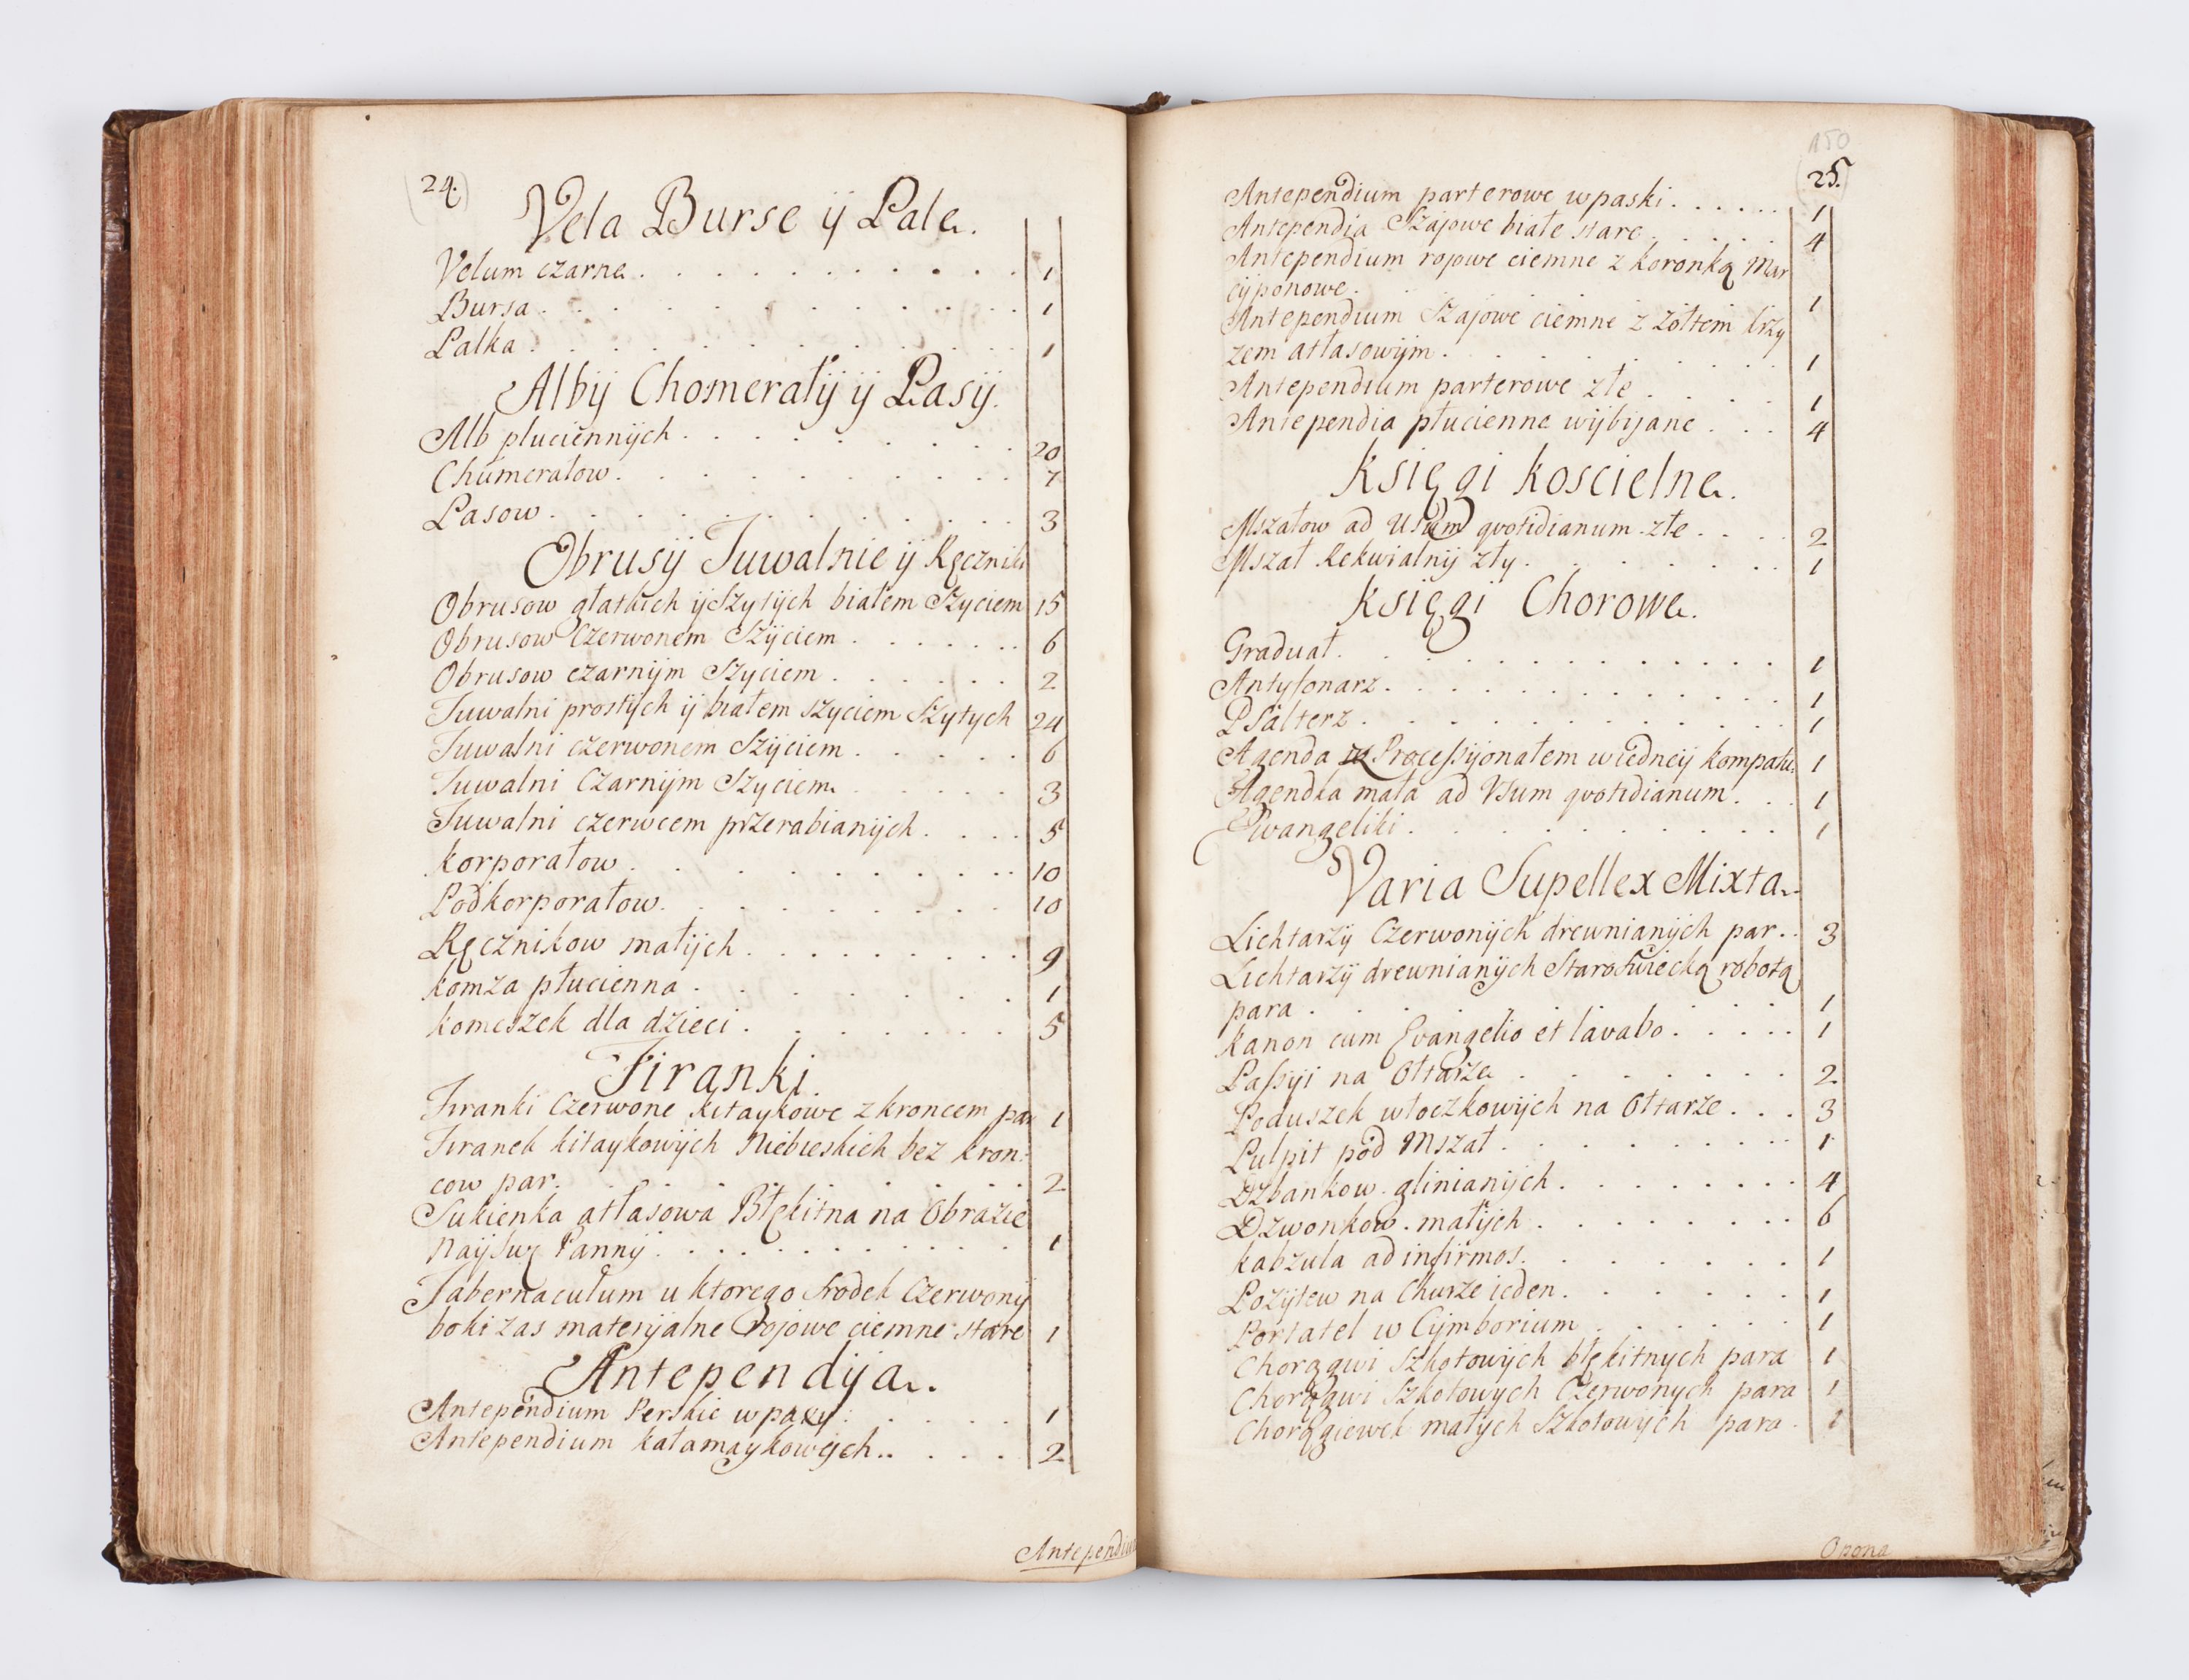 24.
Vela Burse ÿ Pale.
Velum czarne 1
Bursa 1
Palka 1
Albÿ Chomerałÿ ÿ Pasÿ.
Alb pluciennÿch 20
Chumerałow 7
Pasow 3
Obrusÿ Tuwalnie ÿ Ręczniki
Obrusow głatkich ÿ Szytÿch białem Szyciem 15
Obrusow Czerwonem Szÿciem 6
Obrusow czarnÿm Szyciem 2
Tuwalni prostÿch ÿ białem szyciem Szytych 24
Tuwalni czerwonem Szÿciem 6
Tuwalni Czarnÿm Szyciem 3
Tuwalni czerwcem przerabianÿch 5
korporałow 10
Podkorporałow 10
Ręcznikow małÿch 9
komza płucienna 1
komeszek dla dzieci 5
Firanki.
Firanki Czerwone kitaykowe z kroncem par 1
Firanek kitaykowÿch Niebieskich bez kron:
cow par. 2
Sukienka atłasowa Błękitna na Obrazie
Naÿśwę Pannÿ 1
Tabernaculum u ktorego srodek Czerwonÿ
boki zas materÿalne rojowe ciemne stare 1
Antependÿa.
Antependium Perskie w paxy 1
Antependium kałamaykowÿch 2
Antependium
150
25.
Antependium parterowe w paski 1
Antependia Szajowe białe stare 4
Antependium rojowe ciemne z koronką Mar
cÿponowe 1
Antependium Szajowe ciemne z żółtem krzy
zem atłasowÿm 1
Antependium parterowe złe 1
Antependia płucienne wÿbÿane 4
Księgi koscielne.
Mszałow ad Usum qvotidianum złe 2
Mszał Rekwialnÿ zły 1
Księgi Chorowe.
Graduał 1
Antyfonarz 1
Psałterz 1
Agenda z Processÿonałem w iedneÿ kompatu: 1
Agendka mała ad Vsum qvotidianum 1
Ewangeliki 1
Varia Supellex Mixta.
Lichtarzÿ Czerwonÿch drewnianÿch par 3
Lichtarzÿ drewnianÿch Staroświecką robotą
para 1
Kanon cum Evangelio et lavabo 1
Passÿi na Ołtarze 2
Poduszek włoczkowÿch na Ołtarze 3
Pulpit pod Mszał 1
Dzbankow glinianÿch 4
Dzwonkow małÿch 6
kabzula ad infirmos 1
Pozÿtew na Churze ieden 1
Portatel w Cÿmborium 1
Chorągwi Szkołowÿch błękitnych para 1
Chorągwi Szkołowych Czerwonych para 1
Chorągiewek małych Szkołowÿch para 1
Opona